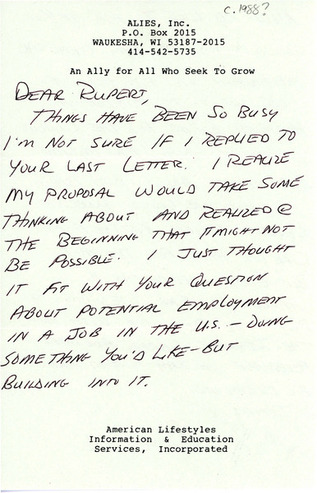 c. 1988?
ALIES, Inc.
P.O. Box 2015
WAUKESHA, WI 53187-2015
414-542-5735
An Ally for All Who Seek To Grow
DEAR RUPERT,
THINGS HAVE BEEN SO BUSY
I'M NOT SURE IF I REPLIED TO
YOUR LAST LETTER. I REALIZE
MY PROPOSAL WOULD TAKE SOME
THINKING ABOUT AND REALIZED @
THE BEGINNING THAT IT MIGHT NOT
BE POSSIBLE. I JUST THOUGHT
IT FIT WITH YOUR QUESTION
ABOUT POTENTIAL EMPLOYMENT
IN A JOB IN THE U.S. — DOING
SOMETHING YOU'D LIKE — BUT
BUILDING INTO IT.
American Lifestyles
Information & Education
Services, Incorporated